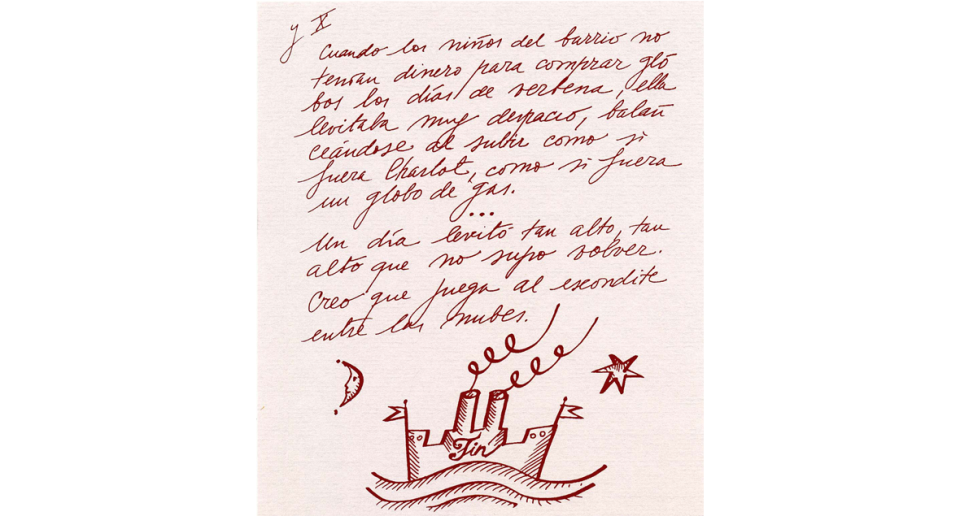 y X
Cuando los niños del barrio no
tenían dinero para comprar gló
bos los días de verbena, ella
levitaba muy despacio, balan
ceándose al subir como si
fuera Charlot, como si fuera
un globo de gas.
...
Un día levitó tan alto, tan
alto que no supo volver.
Creo que juega al escondite
entre las nubes.
Fin